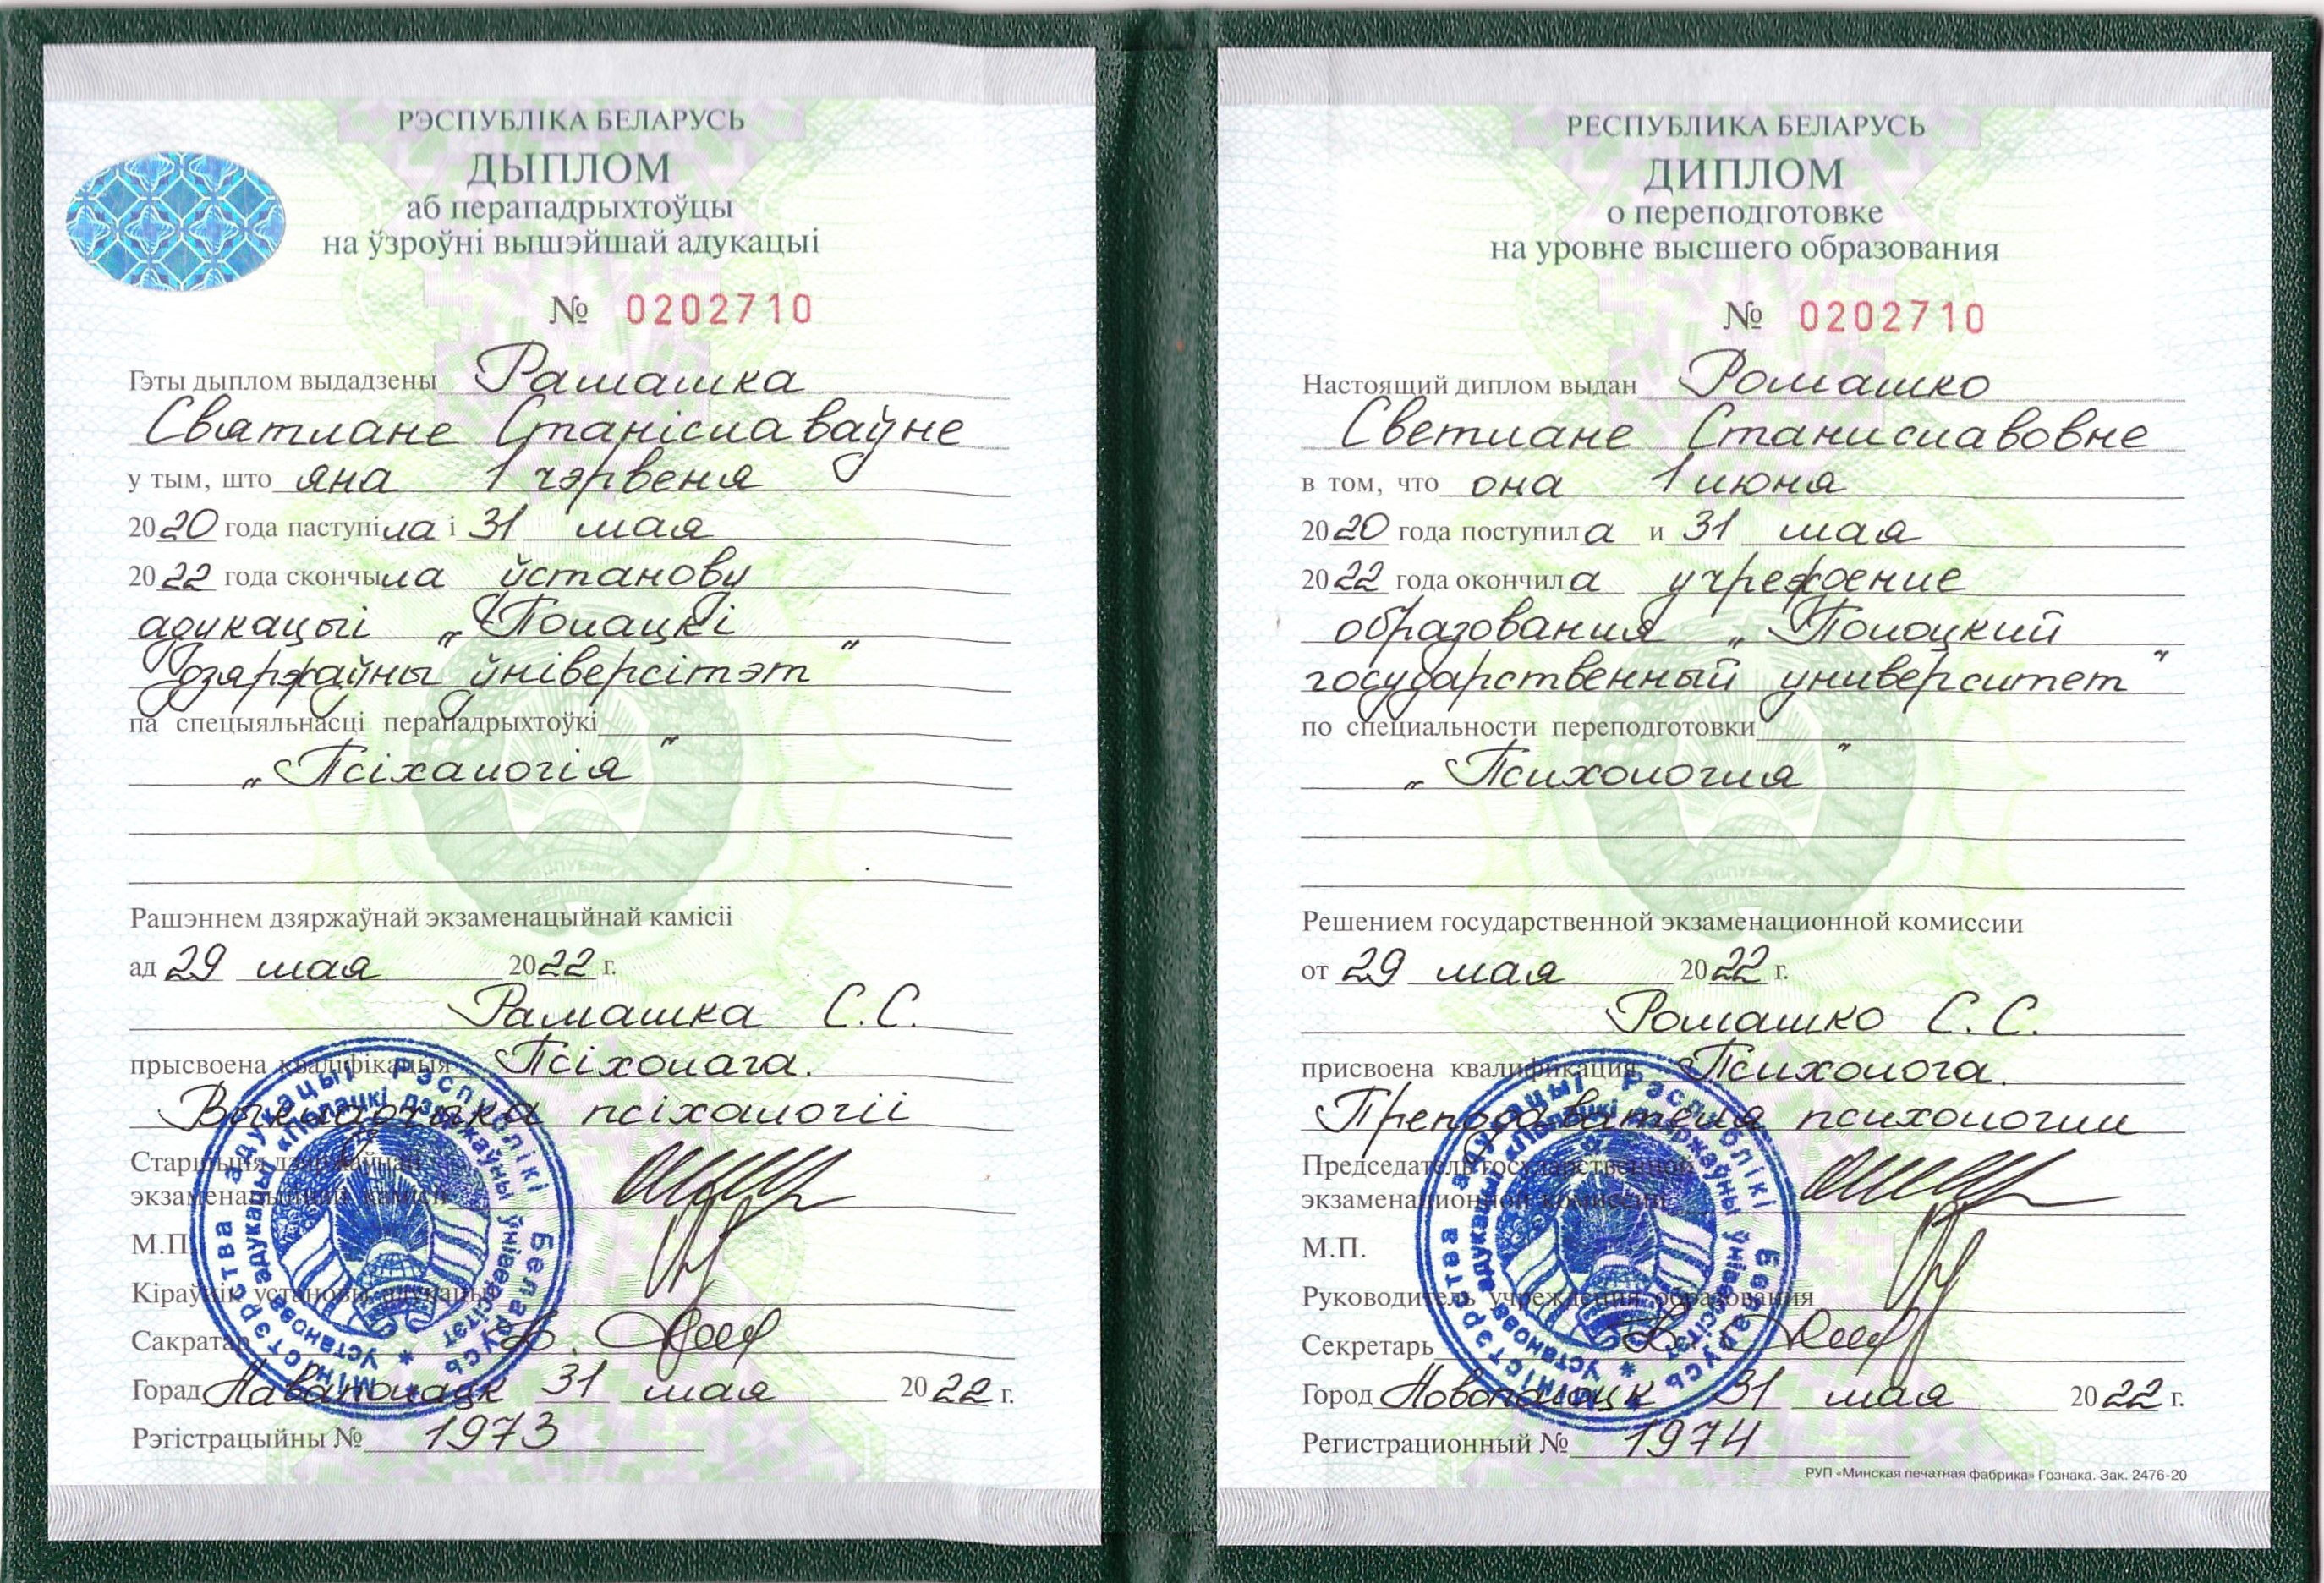 РЭСПУБЛІКА БЕЛАРУСЬ
ДЫПЛОМ
аб перападрыхтоўцы
на ўзроўні вышэйшай адукацыі
№ 0202710
Гэты дыплом выдадзены Рамашка
Святлане Станіславаўне
у тым, што яна 1 чэрвеня
2020 года паступіла і 31 мая
2022 года скончыла ўстанову
адукацыі „Полацкі
дзяржаўны ўніверсітэт"
па спецыяльнасці перападрыхтоўкі
„Псіхалогія"
Рашэннем дзяржаўнай экзаменацыйнай камісіі
ад 29 мая 2022 г.
Рамашка С.С.
прысвоена кваліфікацыя Псіхолага.
Выкладчыка псіхалогіі
Старшыня дзяржаўнай
экзаменацыйнай камісіі
М.П.
Кіраўнік установы адукацыі
Сакратар
Горад Наваполацк 31 мая 2022 г.
Рэгістрацыйны № 1973
Міністэрства адукацыі Рэспублікі Беларусь
установа адукацыі «Полацкі дзяржаўны ўніверсітэт»
РЕСПУБЛИКА БЕЛАРУСЬ
ДИПЛОМ
о переподготовке
на уровне высшего образования
№ 0202710
Настоящий диплом выдан Ромашко
Светлане Станиславовне
в том, что она 1 июня
2020 года поступила и 31 мая
2022 года окончила учреждение
образования „Полоцкий
государственный университет"
по специальности переподготовки
„Психология"
Решением государственной экзаменационной комиссии
от 29 мая 2022 г.
Ромашко С.С.
присвоена квалификация Психолога.
Преподавателя психологии
Председатель государственной
экзаменационной комиссии
М.П.
Руководитель учреждения образования
Секретарь
Город Новополоцк 31 мая 2022 г.
Регистрационный № 1974
РУП «Минская печатная фабрика» Гознака. Зак. 2476-20
Міністэрства адукацыі Рэспублікі Беларусь
установа адукацыі «Полацкі дзяржаўны ўніверсітэт»